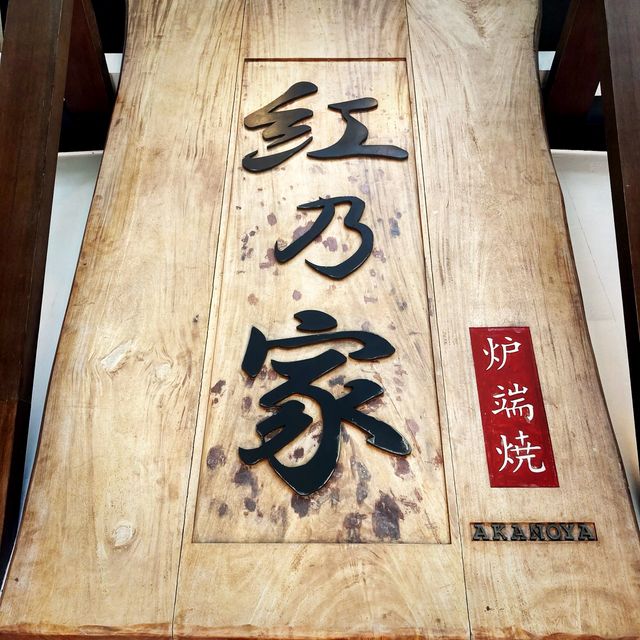 紅乃家
炉端焼
AKANOYA